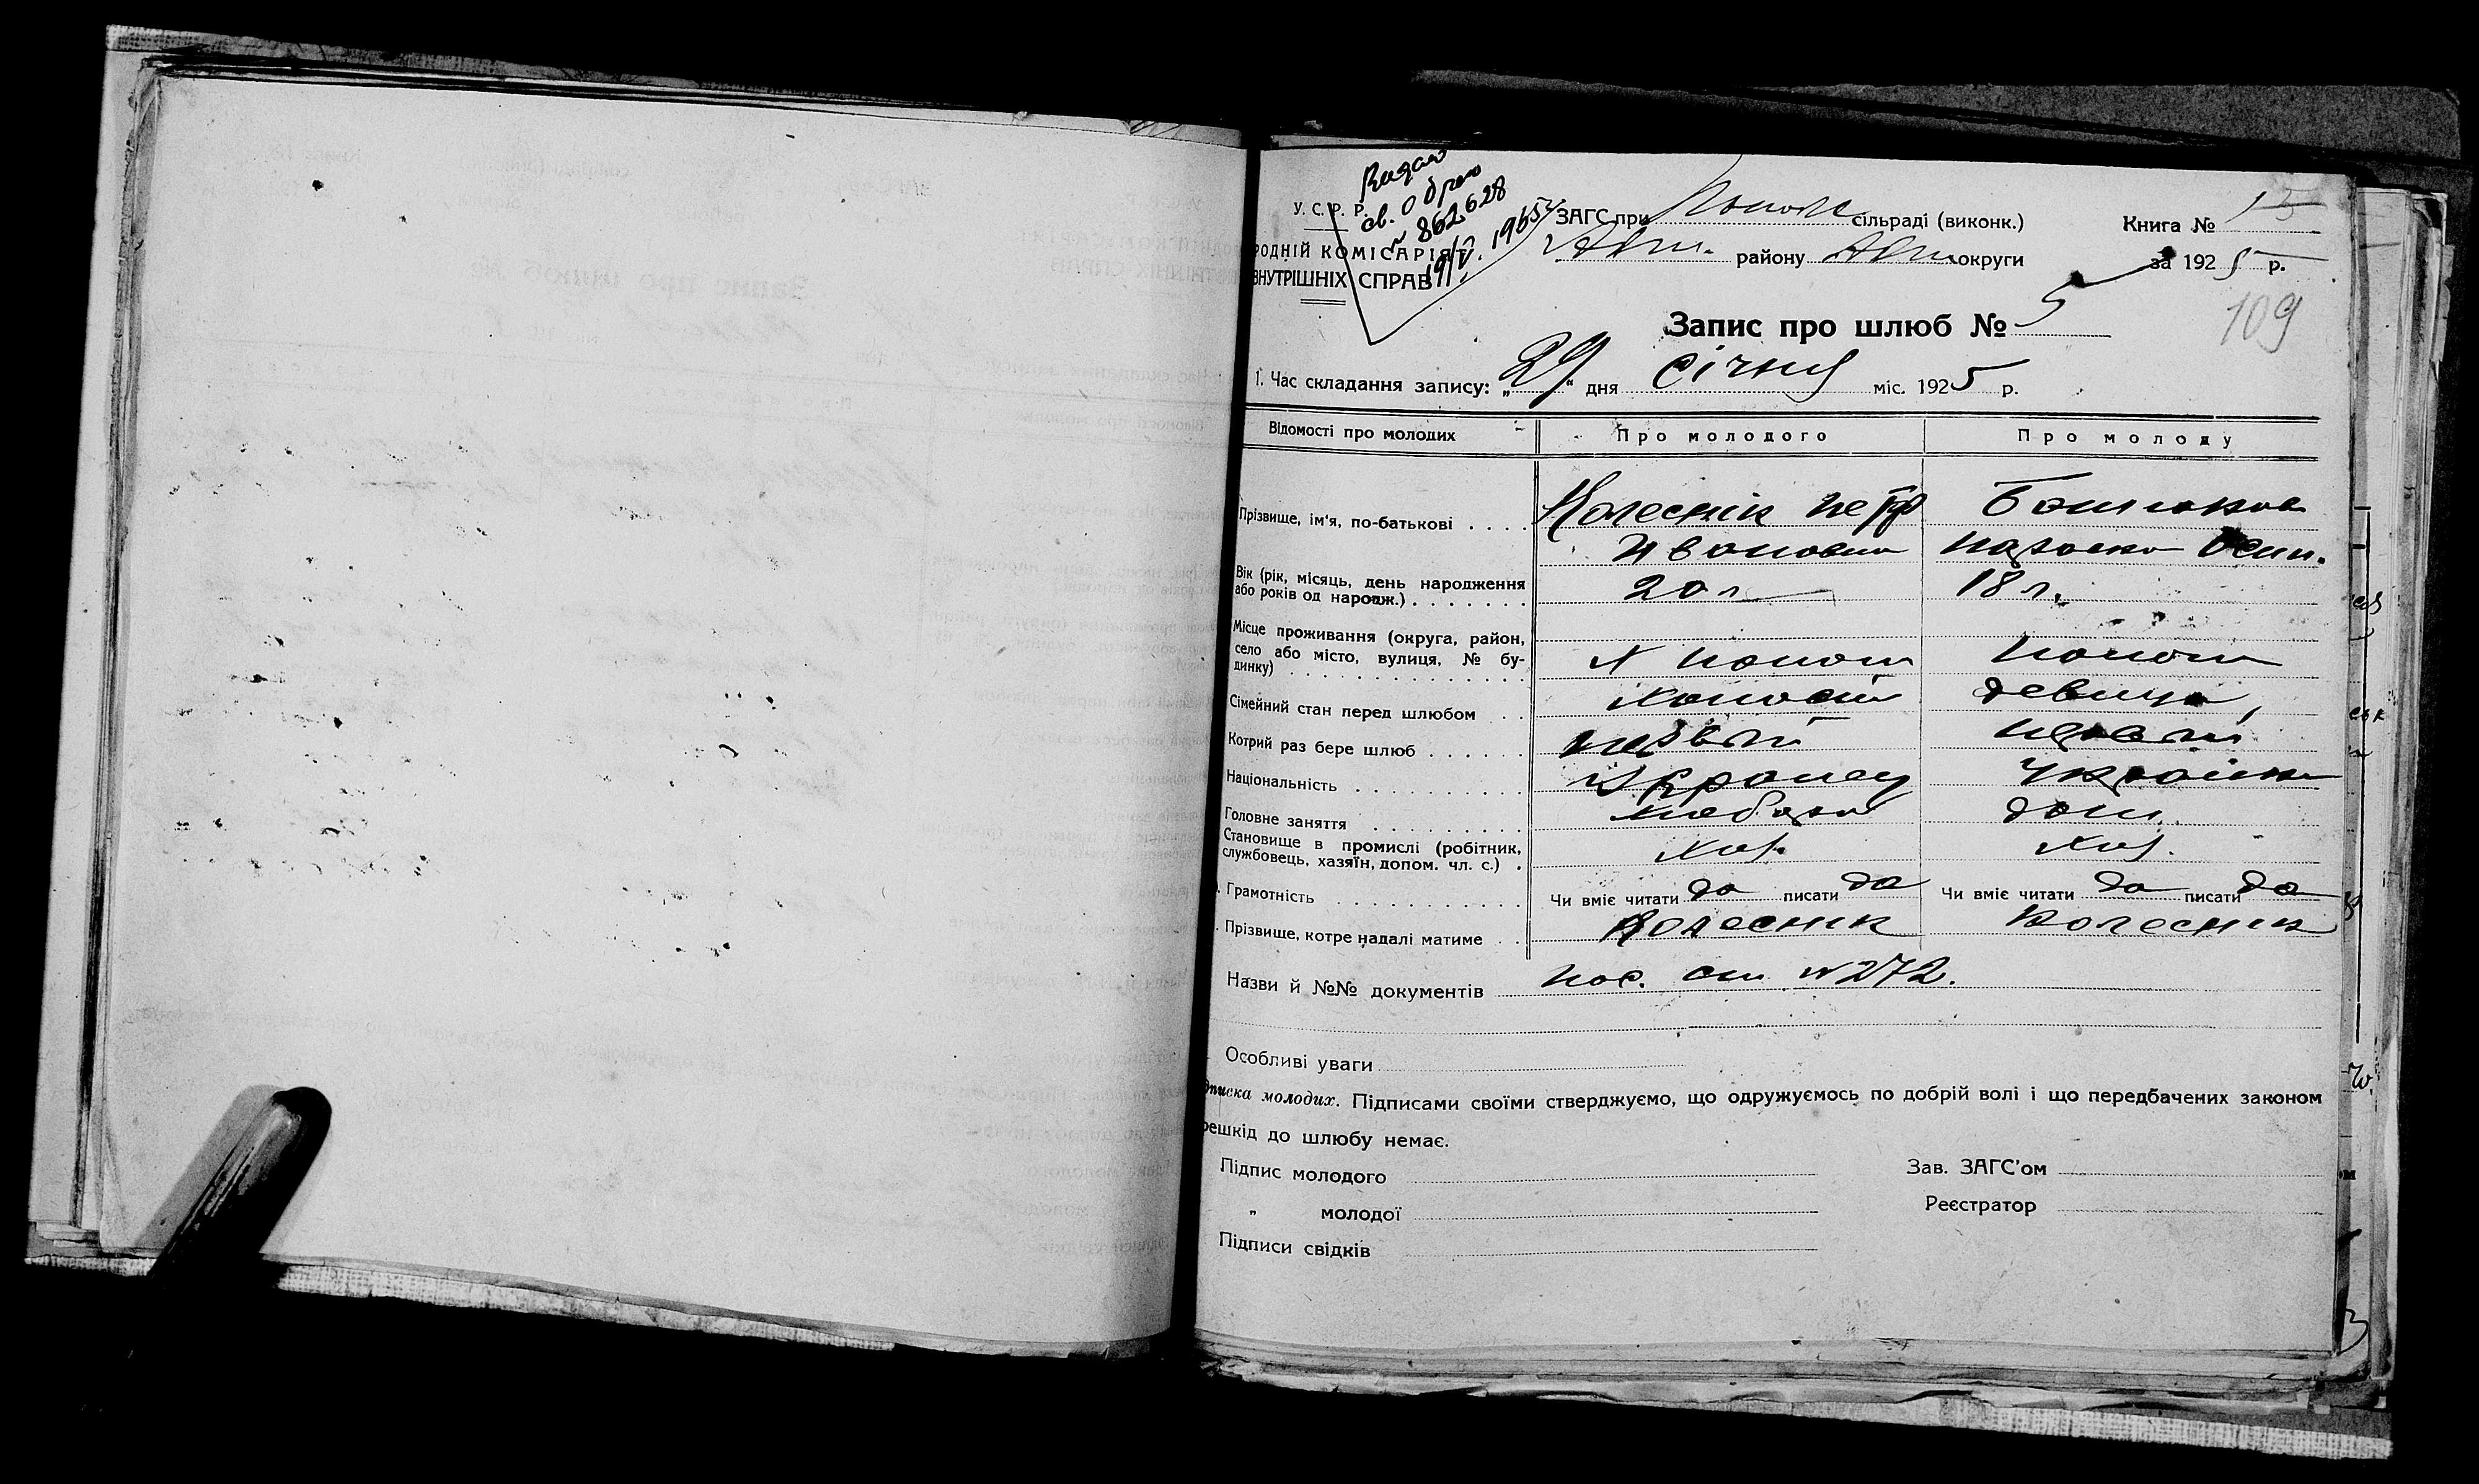 У. С. Р. Р.
св. о брако
№ 862628
19/V. 1965
РОДНІЙ КОМІСАРІЯТ
ВНУТРІШНІХ СПРАВ
ЗАГС при сільраді (виконк.)
району округи
Книга № 15
за 1925 р.
109
Запис про шлюб № 5
1. Час складання запису: „29“ дня січня міс. 1925 р.
Відомості про молодих Про молодого Про молоду
Прізвище, ім'я, по-батькові . . . . Колеснік Петр
Ивонович Осип.
Вік (рік, місяць, день народження
або років од народж.) . . . . . . . 20 л 18 л.
Місце проживання (округа, район,
село або місто, вулиця, № бу-
динку) . . . . . . . . . . . . . .
Сімейний стан перед шлюбом . . Холост девица,
Котрий раз бере шлюб . . . . . . первый первый
Національність . . . . . . . . . . Украинец Украінка
Головне заняття . . . . . . . . . хлебороб дом.
Становище в промислі (робітник,
службовець, хазяїн, допом. чл. с.) . Хоз. Хоз.
Грамотність . . . . . . . . . . . Чи вміє читати да писати да Чи вміє читати да писати да
Прізвище, котре надалі матиме . . Колесник Колесник
Назви й №№ документів пос. ст № 272.
Особливі уваги
дписка молодих. Підписами своїми стверджуємо, що одружуємось по добрій волі і що передбачених законом
решкід до шлюбу немає.
Підпис молодого
„ молодої
Підписи свідків
Зав. ЗАГС'ом
Реєстратор